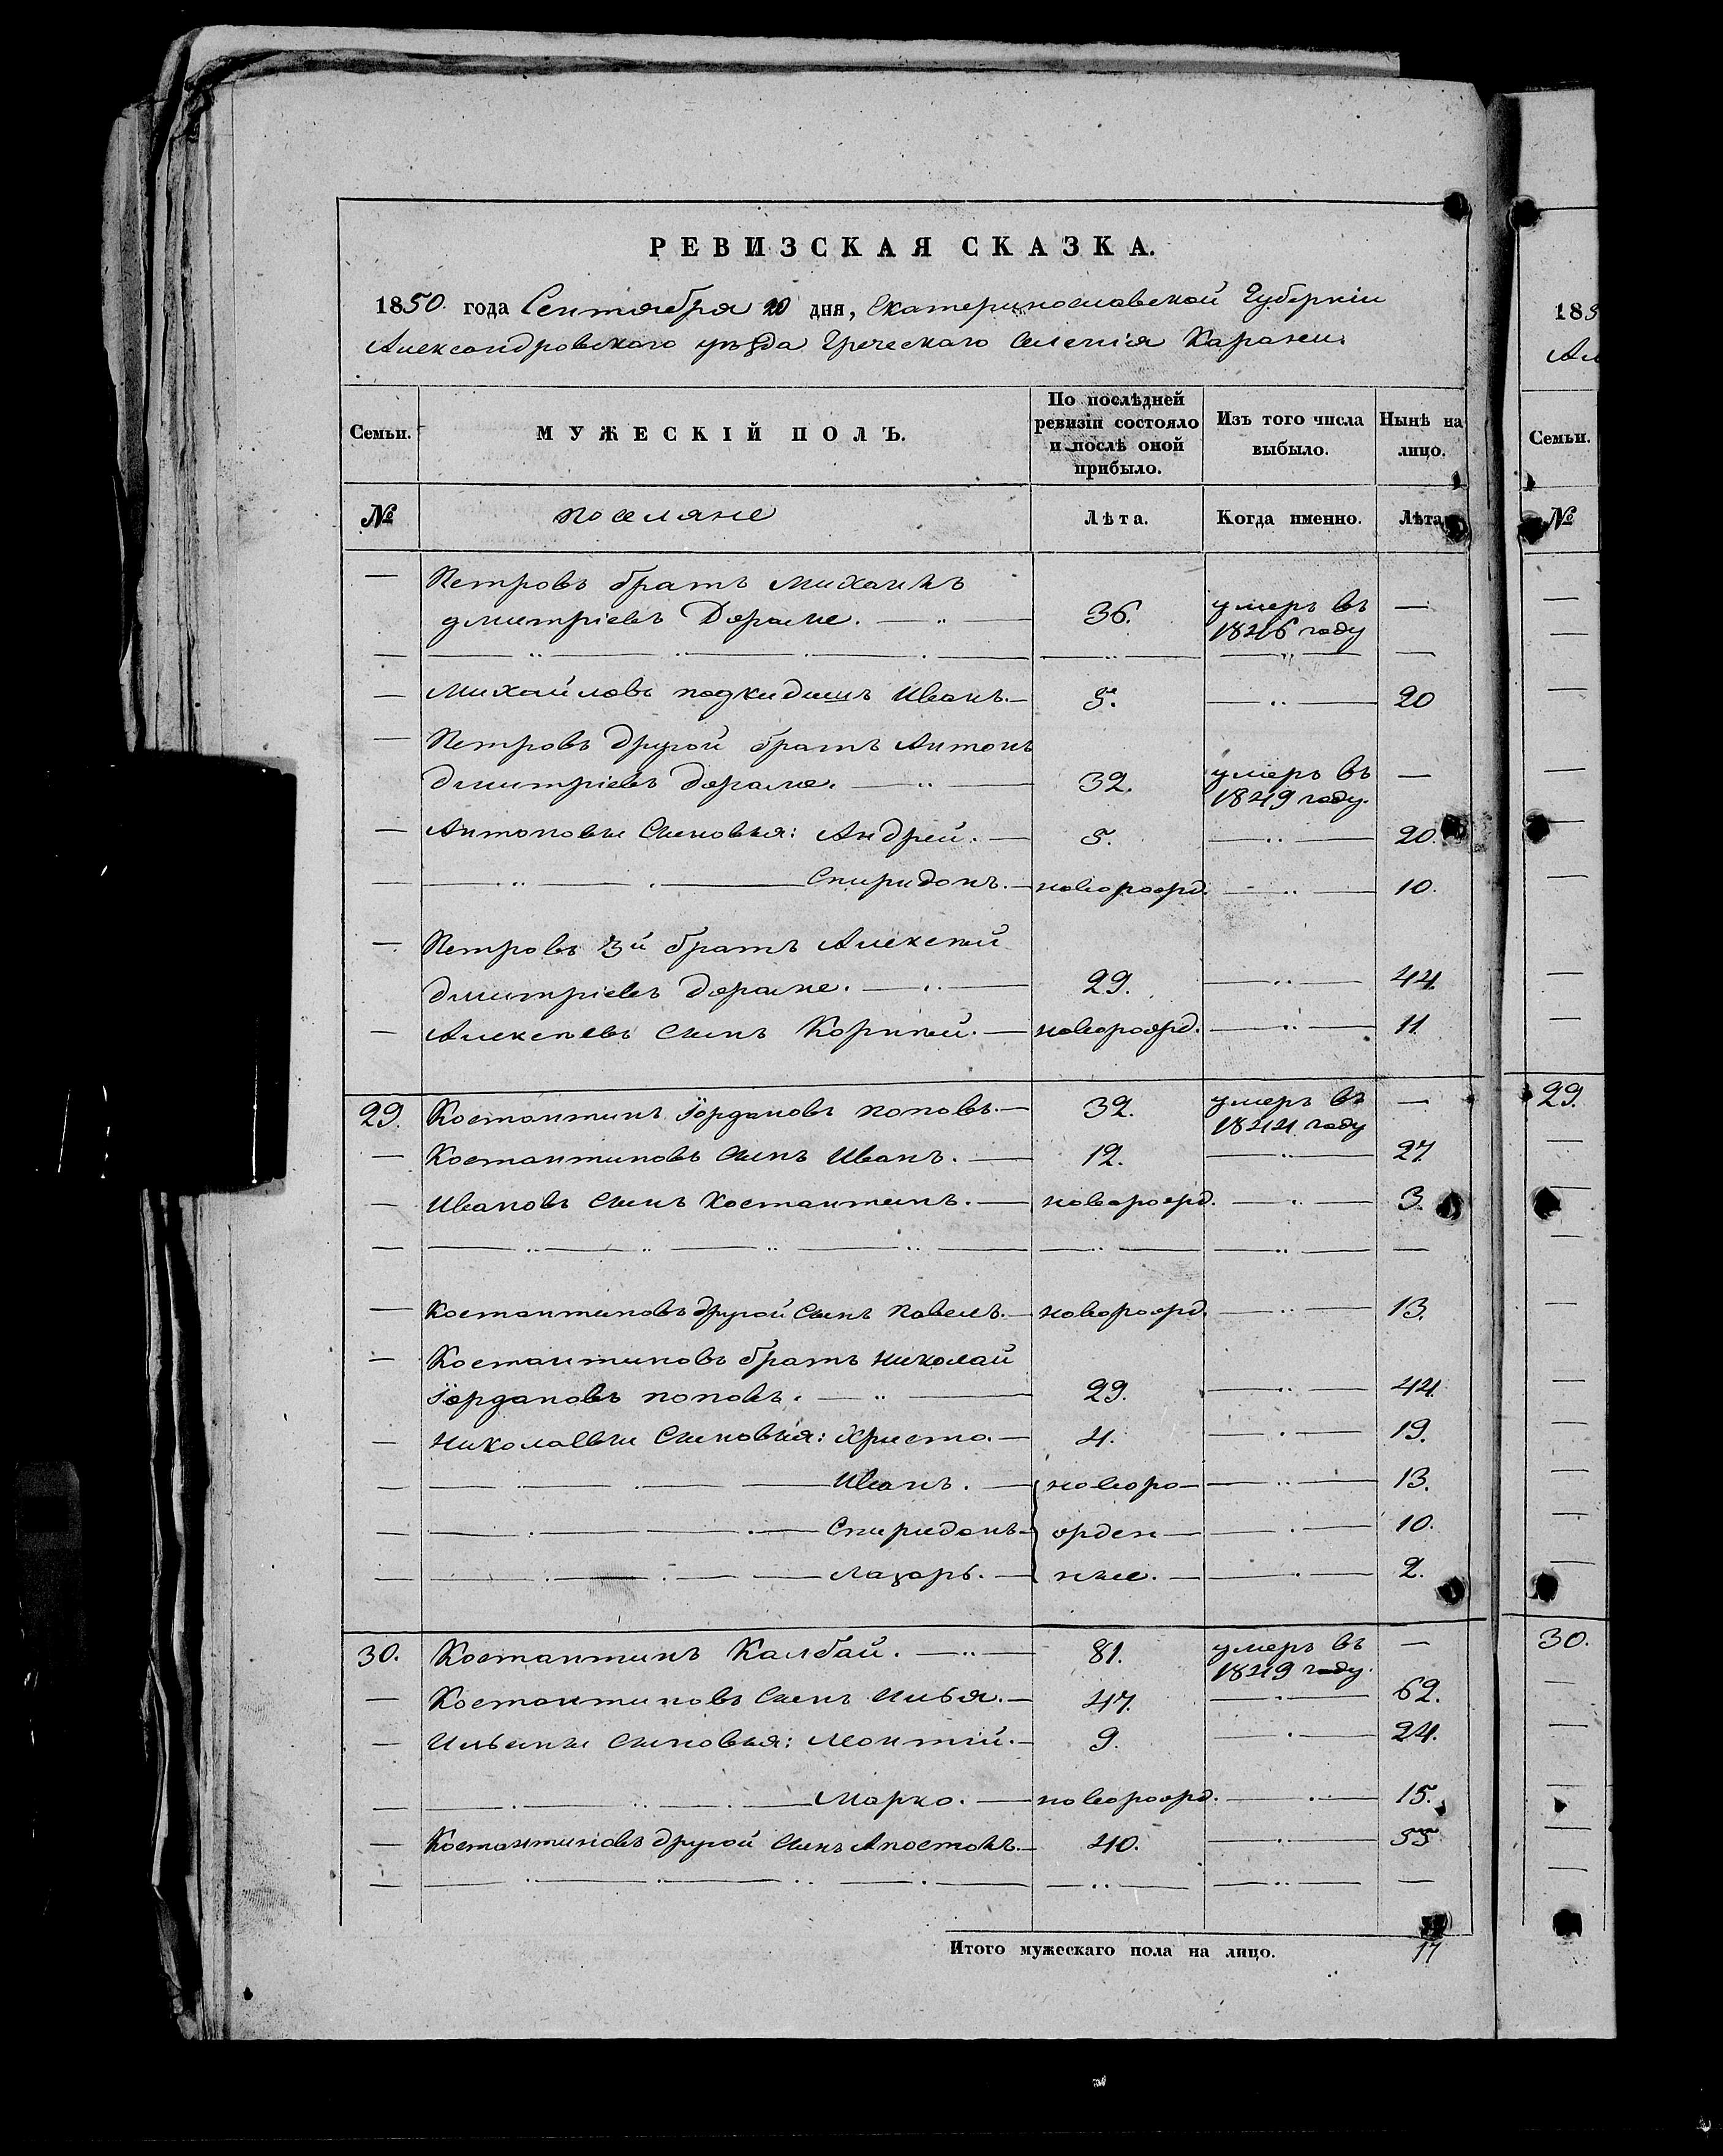 РЕВИЗСКАЯ СКАЗКА.
1850 года Сентября 20 дня, Екатеринославской Губерніи
Александровского уѣзда Греческаго Селенія Карани.
Семьи. МУЖЕСКІЙ ПОЛЪ. По послѣдней ревизіи состояло и послѣ оной прибыло. Изъ того числа выбыло. Нынѣ на лицо.
№ поселяне Лѣта. Когда именно. Лѣта
— Петровъ братъ Михаилъ
дмитріевъ Дораме. — 36. умеръ въ 1846 году —
— Михайловъ подкидышъ Иванъ. — 5. — 20
— Петровъ другой братъ Антонъ
дмитріевъ дораме. — 32. умеръ въ 1849 году. —
— Антоновы Сыновья: Андрей. — 5. — 20.
— Спиридонъ. — новорожд. — 10.
— Петровъ 3й братъ Алексѣй
дмитріевъ дораме. — 29. — 44.
— Алексѣевъ сынъ Корнѣй. — новорожд. — 11.
29. Костантинъ Іордановъ поповъ. — 32. умеръ въ 1844 году —
— Костантиновъ сынъ Иванъ. — 12. — 27.
— Ивановъ сынъ Костантинъ. — новорожд. — 3.
— Костантиновъ другой сынъ павелъ. — новорожд. — 13.
— Костантиновъ братъ николай
Іордановъ поповъ. — 29. — 44.
— николаевы Сыновья: христо. — 4. — 19.
— Иванъ. — новоро — 13.
— Спиридонъ — жден — 10.
— лазарь. — ные. — 2.
30. Костантинъ Калбай. — 81. умеръ въ 1849 году. —
— Костантиновъ сынъ Илья. — 47. — 62.
— Ильины сыновья: леонтій. — 9. — 24.
— Марко. — новорожд. — 15.
— Костантиновъ другой сынъ Апостолъ. — 40. — 55
Итого мужескаго пола на лицо. 17
183
Ал
Семьи.
№
29.
30.